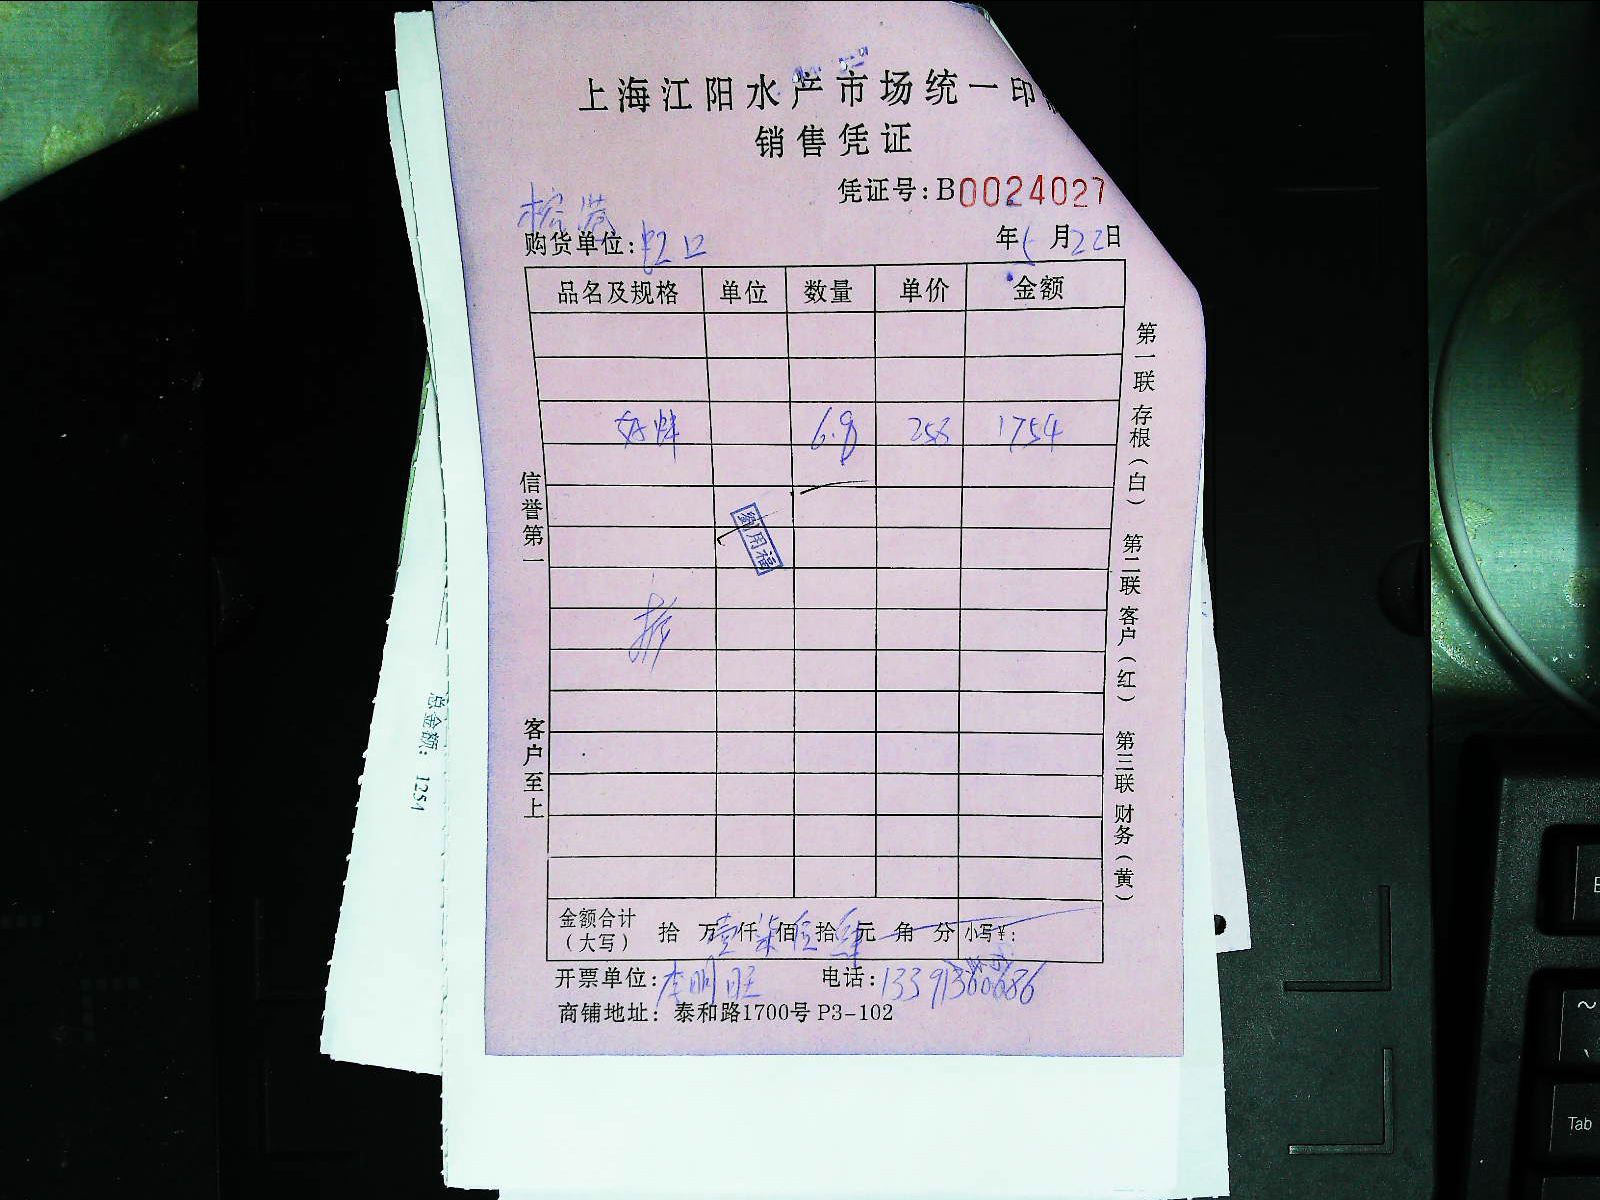 上海江阳水产市场统一印
销售凭证
凭证号:B0024027
购货单位:虹口
年5月22日
品名及规格 单位 数量 单价 金额
6.8 258 1754
信誉第一
客户至上
第一联 存根(白) 第二联 客户(红) 第三联 财务(黄)
金额合计(大写) 拾 万壹仟柒佰伍拾肆元 角 分 小写¥:
开票单位:李明旺 电话:13391360686
商铺地址: 泰和路1700号 P3-102
总金额: 1254